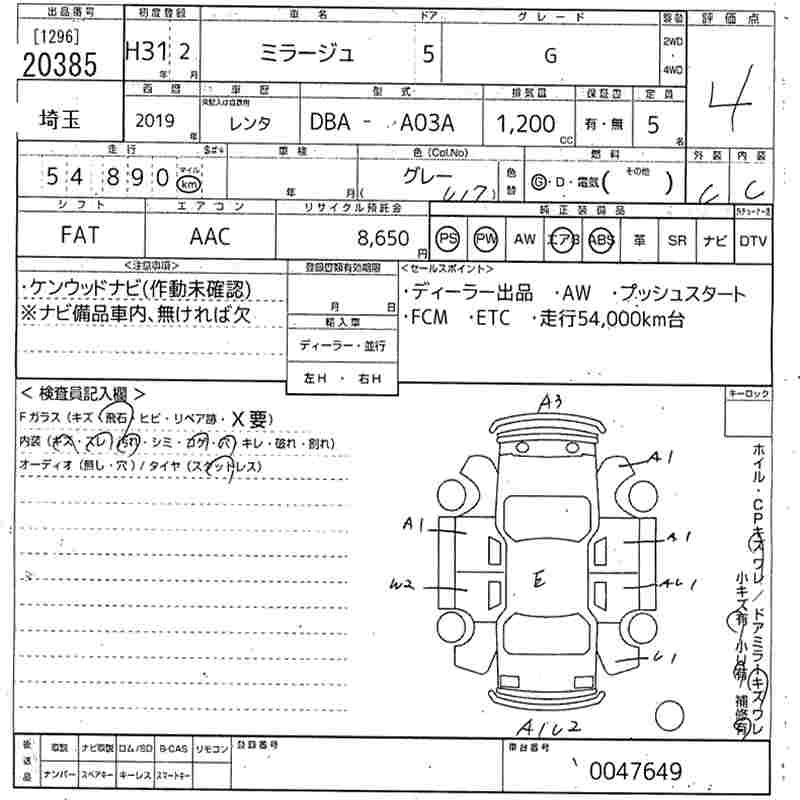 出品番号 初度登録 車名 ドア グレード 駆動 評価点
[1296]
20385 H31年 2月 ミラージュ 5 G 2WD・4WD 4
埼玉 西暦 車歴 型式 排気量 保証書 定員
2019年 レンタ DBA - A03A 1,200cc 有・無 5名
走行 車検 色(Col.No) 燃料 外装 内装
54890 マイル km 年 月 グレー (U17) 色替 G・D・電気( その他 ) C C
シフト エアコン リサイクル預託金 純正装備品
FAT AAC 8,650円 PS PW AW エアB ABS 革 SR ナビ DTV
<注意事項> 登録書類有効期限 <セールスポイント>
・ケンウッドナビ(作動未確認) 月 日 ・ディーラー出品 ・AW ・プッシュスタート
※ナビ備品車内、無ければ欠 輸入車 ・FCM ・ETC ・走行54,000km台
ディーラー・並行
左H ・ 右H
<検査員記入欄> キーロック
Fガラス(キズ・飛石・ヒビ・リペア跡・X要)
内装(キズ・スレ・汚れ・シミ・コゲ・穴・キレ・破れ・割れ)
オーディオ(無し・穴)/タイヤ(スタットレス)
A3
A1
A1 A1
E
W2 AU1
U1
A1U2
ホイル・CPキズワレ/ドアミラーキズワレ
小キズ有/小凹有/補修有
後送品 取説 ナビ取説 ロム/SD B-CAS リモコン 登録番号 車台番号
ナンバー スペアキー キーレス スマートキー 0047649